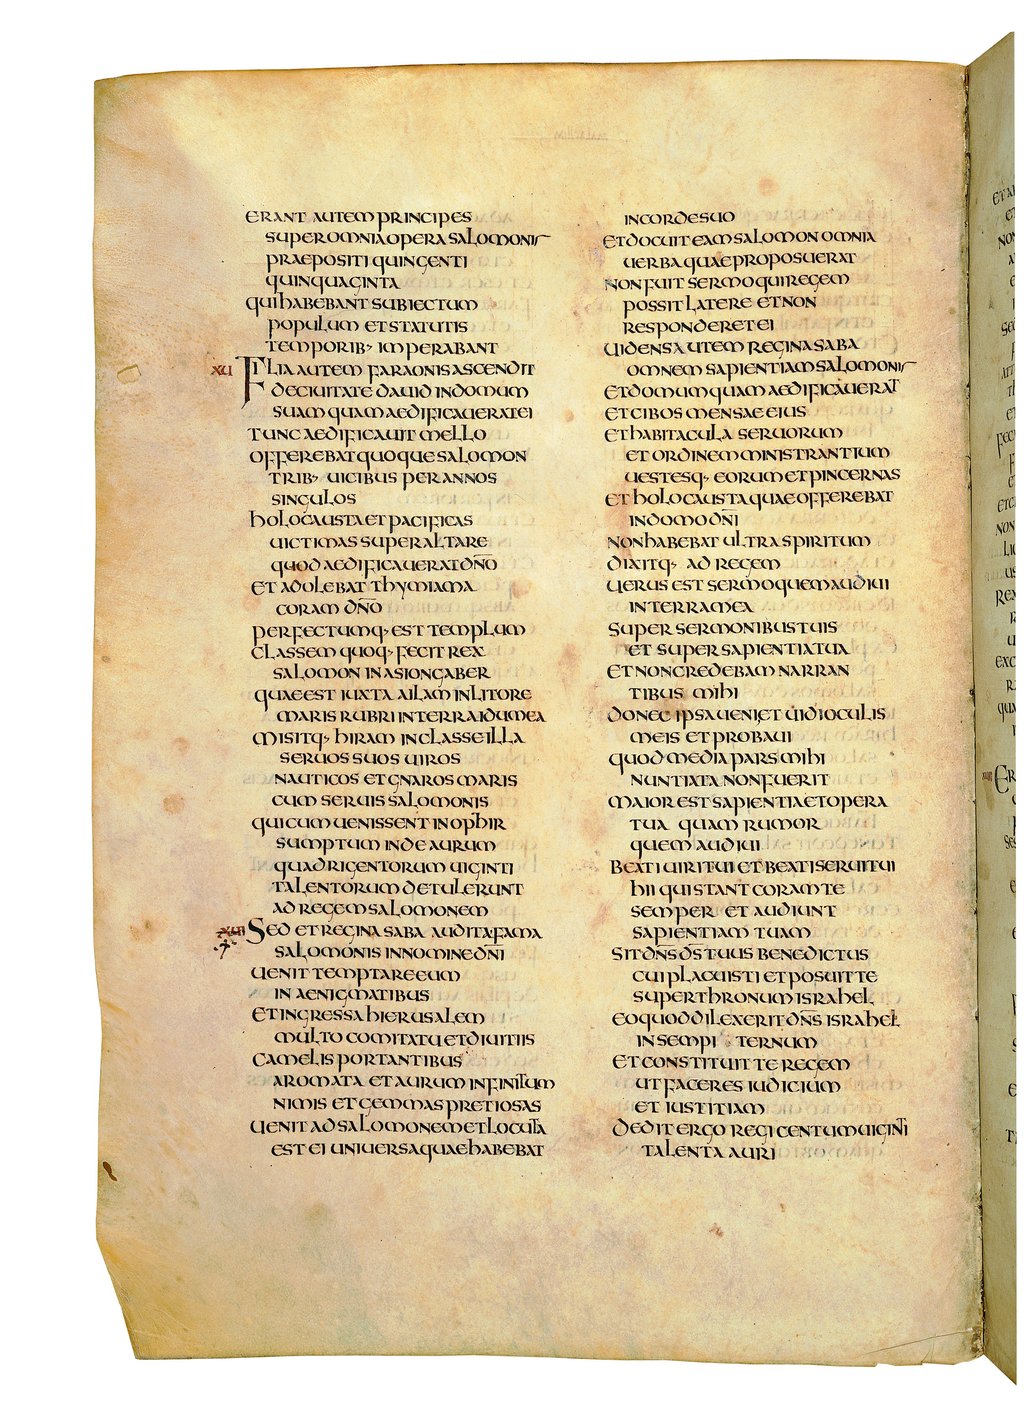 ERANT AUTEM PRINCIPES
SUPER OMNIA OPERA SALOMONIS
PRAEPOSITI QUINGENTI
QUINQUAGINTA
QUI HABEBANT SUBIECTUM
POPULUM ET STATUTIS
TEMPORIB· IMPERABANT
XVI FILIA AUTEM FARAONIS ASCENDIT
DE CIUITATE DAUID IN DOMUM
SUAM QUAM AEDIFICAUERAT EI
TUNC AEDIFICAUIT MELLO
OFFEREBAT QUOQUE SALOMON
TRIB· UICIBUS PER ANNOS
SINGULOS
HOLOCAUSTA ET PACIFICAS
UICTIMAS SUPER ALTARE
QUOD AEDIFICAUERAT DÑO
ET ADOLEBAT THYMIAMA
CORAM DÑO
PERFECTUMQ· EST TEMPLUM
CLASSEM QUOQ· FECIT REX
SALOMON IN ASIONGABER
QUAE EST IUXTA AILAM IN LITORE
MARIS RUBRI IN TERRA IDUMEA
MISITQ· HIRAM IN CLASSE ILLA
SERUOS SUOS UIROS
NAUTICOS ET GNAROS MARIS
CUM SERUIS SALOMONIS
QUI CUM UENISSENT IN OPHIR
SUMPTUM INDE AURUM
QUADRIGENTORUM UIGINTI
TALENTORUM DETULERUNT
AD REGEM SALOMONEM
XVII SED ET REGINA SABA AUDITA FAMA
SALOMONIS IN NOMINE DÑI
UENIT TEMPTARE EUM
IN AENIGMATIBUS
ET INGRESSA HIERUSALEM
MULTO COMITATU ET DIUITIIS
CAMELIS PORTANTIBUS
AROMATA ET AURUM INFINITUM
NIMIS ET GEMMAS PRETIOSAS
UENIT AD SALOMONEM ET LOCUTA
EST EI UNIUERSA QUAE HABEBAT
IN CORDE SUO
ET DOCUIT EAM SALOMON OMNIA
UERBA QUAE PROPOSUERAT
NON FUIT SERMO QUI REGEM
POSSIT LATERE ET NON
RESPONDERET EI
UIDENS AUTEM REGINA SABA
OMNEM SAPIENTIAM SALOMONIS
ET DOMUM QUAM AEDIFICAUERAT
ET CIBOS MENSAE EIUS
ET HABITACULA SERUORUM
ET ORDINEM MINISTRANTIUM
UESTESQ· EORUM ET PINCERNAS
ET HOLOCAUSTA QUAE OFFEREBAT
IN DOMO DÑI
NON HABEBAT ULTRA SPIRITUM
DIXITQ· AD REGEM
UERUS EST SERMO QUEM AUDIUI
IN TERRA MEA
SUPER SERMONIBUS TUIS
ET SUPER SAPIENTIA TUA
ET NON CREDEBAM NARRAN
TIBUS MIHI
DONEC IPSA UENI ET UIDI OCULIS
MEIS ET PROBAUI
QUOD MEDIA PARS MIHI
NUNTIATA NON FUERIT
MAIOR EST SAPIENTIA ET OPERA
TUA QUAM RUMOR
QUEM AUDIUI
BEATI UIRI TUI ET BEATI SERUI TUI
HII QUI STANT CORAM TE
SEMPER ET AUDIUNT
SAPIENTIAM TUAM
SIT DÑS DS̄ TUUS BENEDICTUS
CUI PLACUISTI ET POSUIT TE
SUPER THRONUM ISRAHEL
EO QUOD DILEXERIT DÑS ISRAHEL
IN SEMPI TERNUM
ET CONSTITUIT TE REGEM
UT FACERES IUDICIUM
ET IUSTITIAM
DEDIT ERGO REGI CENTUM UIGINTI
TALENTA AURI